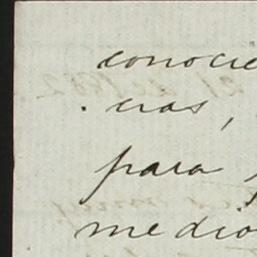 conocie
cias,
para
medio